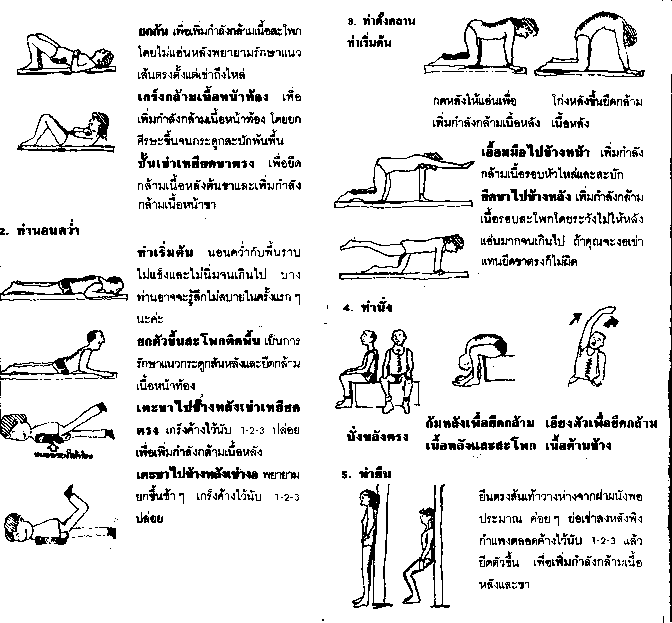 ยกก้น เพื่อเพิ่มกำลังกล้ามเนื้อสะโพก
โดยไม่แอ่นหลังพยายามรักษาแนว
เส้นตรงตั้งแต่เข่าถึงไหล่
เกร็งกล้ามเนื้อหน้าท้อง เพื่อ
เพิ่มกำลังกล้ามเนื้อหน้าท้อง โดยยก
ศีรษะขึ้นจนกระดูกสะบักพ้นพื้น
ชันเข่าเหยียดขาตรง เพื่อยืด
กล้ามเนื้อหลังต้นขาและเพิ่มกำลัง
กล้ามเนื้อหน้าขา
2. ท่านอนคว่ำ
ท่าเริ่มต้น นอนคว่ำกับพื้นราบ
ไม่แข็งและไม่นิ่มจนเกินไป บาง
ท่านอาจจะรู้สึกไม่สบายในครั้งแรก ๆ
นะค่ะ
ยกตัวขึ้นสะโพกติดพื้น เป็นการ
รักษาแนวกระดูกสันหลังและยืดกล้าม
เนื้อหน้าท้อง
เตะขาไปข้างหลังเข่าเหยียด
ตรง เกร็งค้างไว้นับ 1-2-3 ปล่อย
เพื่อเพิ่มกำลังกล้ามเนื้อหลัง
เตะขาไปข้างหลังเข่างอ พยายาม
ยกขึ้นช้า ๆ เกร็งค้างไว้นับ 1-2-3
ปล่อย
3. ท่าตั้งคลาน
ท่าเริ่มต้น
กดหลังให้แอ่นเพื่อ
เพิ่มกำลังกล้ามเนื้อหลัง
โก่งหลังขึ้นยืดกล้าม
เนื้อหลัง
เอื้อมมือไปข้างหน้า เพิ่มกำลัง
กล้ามเนื้อรอบหัวไหล่และสะบัก
ยืดขาไปข้างหลัง เพิ่มกำลังกล้าม
เนื้อรอบสะโพกโดยระวังไม่ให้หลัง
แอ่นมากจนเกินไป ถ้าคุณจะงอเข่า
แทนยืดขาตรงก็ไม่ผิด
4. ท่านั่ง
นั่งหลังตรง
ก้มหลังเพื่อยืดกล้าม
เนื้อหลังและสะโพก
เอียงตัวเพื่อยืดกล้าม
เนื้อด้านข้าง
5. ท่ายืน
ยืนตรงส้นเท้าวางห่างจากฝาผนังพอ
ประมาณ ค่อย ๆ ย่อเข่าลงหลังพิง
กำแพงตลอดค้างไว้นับ 1-2-3 แล้ว
ยืดตัวขึ้น เพื่อเพิ่มกำลังกล้ามเนื้อ
หลังและขา